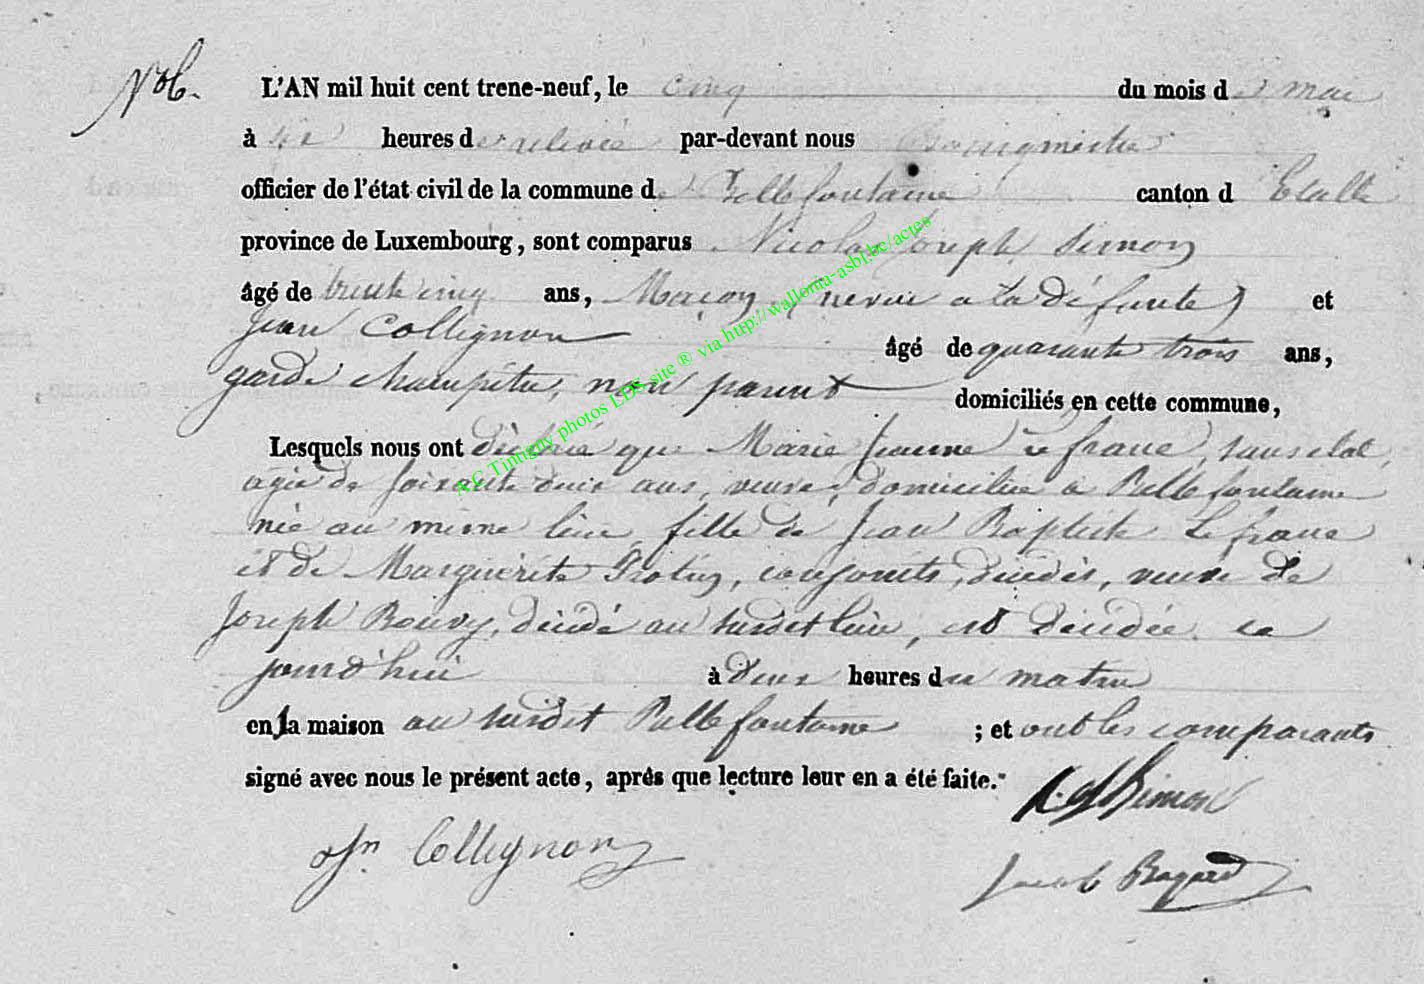 N° 6.
L'AN mil huit cent trene-neuf, le cinq du mois de mai
à six heures de relevée par-devant nous Bourgmestre
officier de l'état civil de la commune de Bellefontaine canton d Etalle
province de Luxembourg, sont comparus Nicolas Joseph Simon
âgé de trente cinq ans, Maçon (neveu a la défunte) et
Jean Collignon âgé de quarante trois ans,
garde champêtre, non parent domiciliés en cette commune,
Lesquels nous ont déclaré que Marie Jeanne Le franc, sans etat,
agée de soixante deux ans, veuve, domiciliée à Bellefontaine
née au même lieu, fille de Jean Baptiste Le franc
et de Marguerite conjoints, décédés, veuve de
Joseph Bouvy, décédé au susdit lieu, est décédée ce
jourd'hui à deux heures du matin
en la maison au susdit Bellefontaine ; et ont les comparants
signé avec nous le présent acte, après que lecture leur en a été faite.
Simon
Jn Collignon
Jacob
AC Tintigny photos LDS site ® via http://wallonia-asbl.be/actes